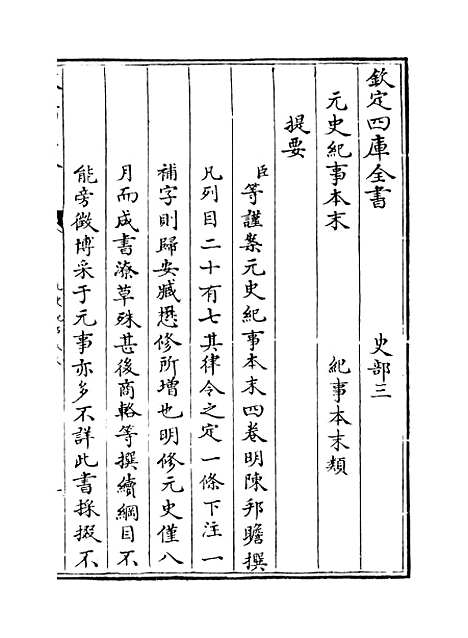 欽定四庫全書　史部三
元史紀事本末　紀事本末類
提要
臣等謹案元史紀事本末四卷明陳邦瞻撰
凡列目二十有七其律令之定一條下注一
補字則歸安臧懋修所增也明修元史僅八
月而成書潦草殊甚後商輅等撰續綱目不
能旁徴博采于元事亦多不詳此書採掇不